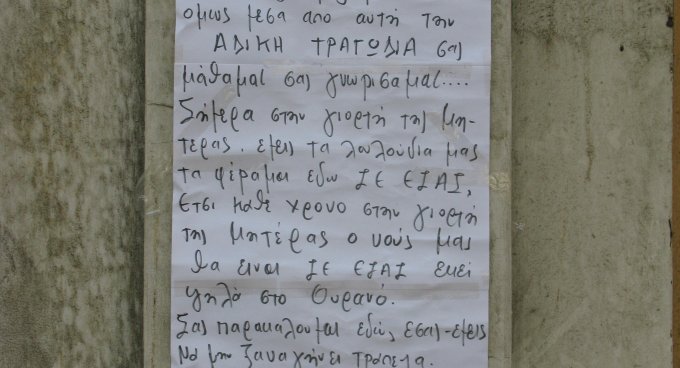 ομως μεσα απο αυτή την
ΑΔΙΚΗ ΤΡΑΓΩΔΙΑ σας
μάθαμαι σας γνωρισαμαι....
Σήμερα στην γιορτή της Μη-
τερας. εμεις τα λουλούδια μας
τα φέραμαι εδω ΣΕ ΕΣΑΣ,
Ετσι καθε χρονο στην γιορτή
της μητέρας ο νούς μας
θα ειναι ΣΕ ΕΣΑΣ εκεί
ψηλά στο Ουρανό.
Σας παρακαλουμαι εδώ, εσας-εμεις
Να μην ξαναγηνει τραπεζα.